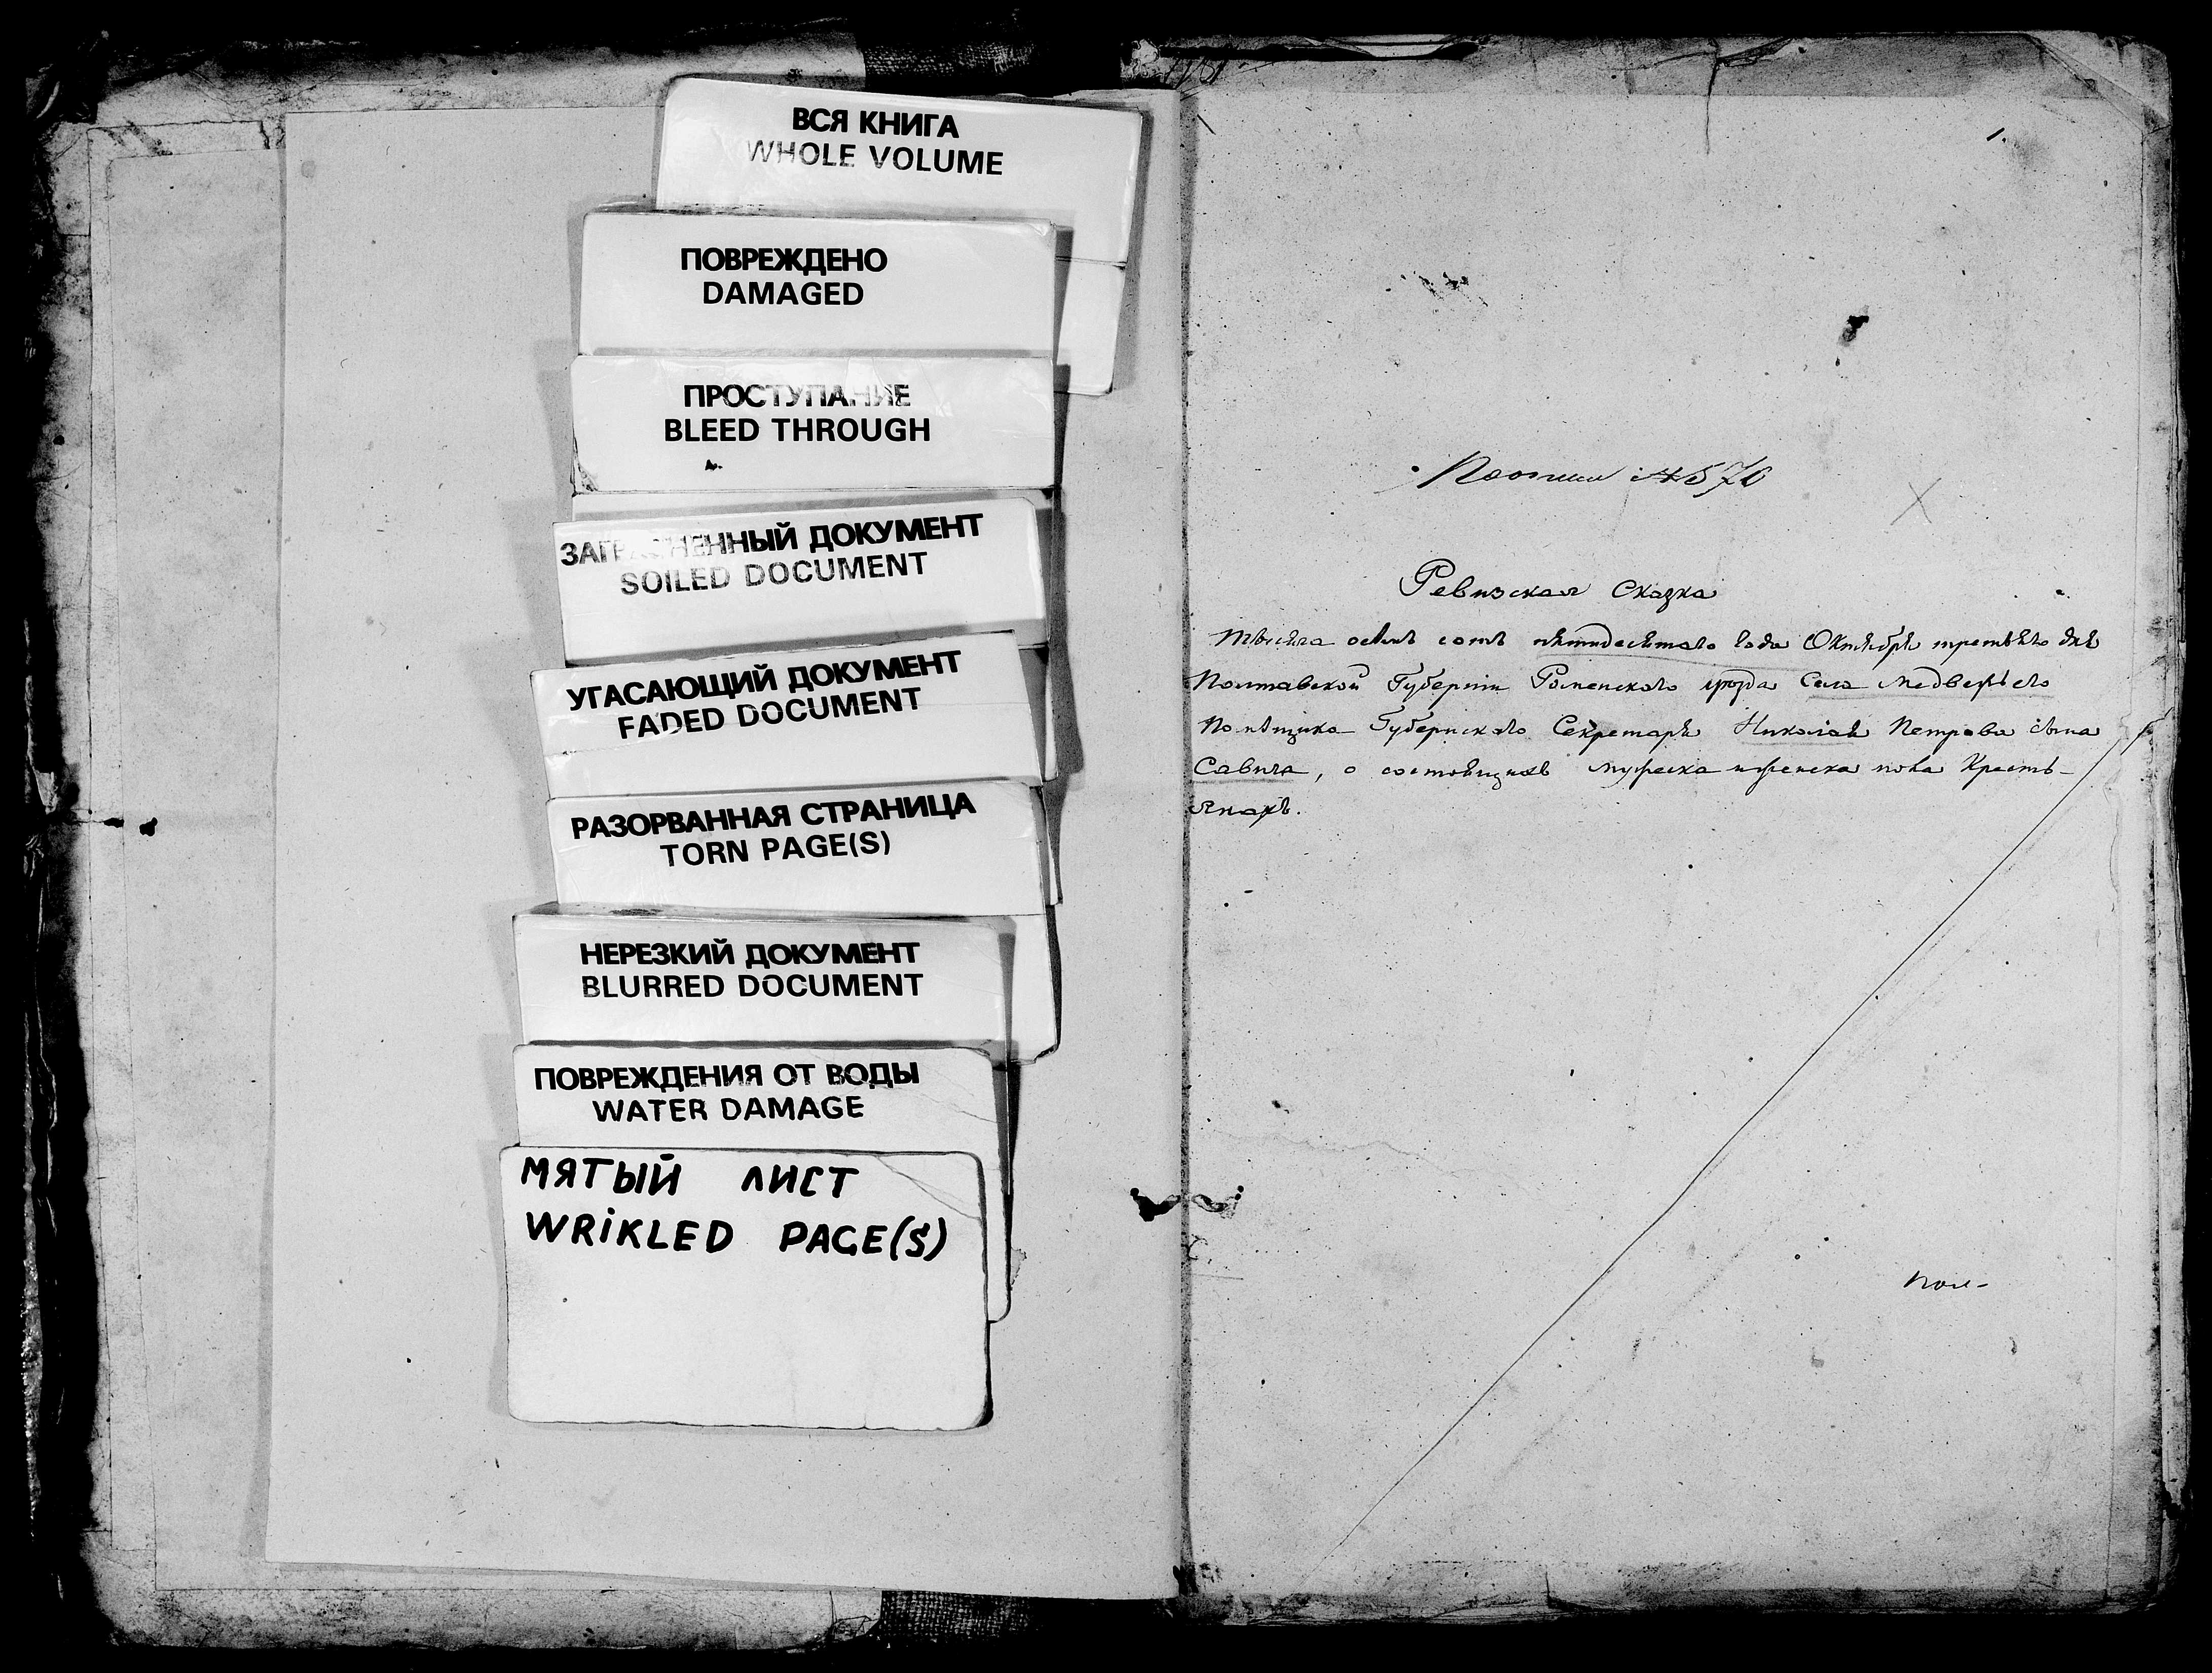 ВСЯ КНИГА
WHOLE VOLUME
ПОВРЕЖДЕНО
DAMAGED
ПРОСТУПАНИЕ
BLEED THROUGH
ЗАГРЯЗНЕННЫЙ ДОКУМЕНТ
SOILED DOCUMENT
УГАСАЮЩИЙ ДОКУМЕНТ
FADED DOCUMENT
РАЗОРВАННАЯ СТРАНИЦА
TORN PAGE(S)
НЕРЕЗКИЙ ДОКУМЕНТ
BLURRED DOCUMENT
ПОВРЕЖДЕНИЯ ОТ ВОДЫ
WATER DAMAGE
МЯТЫЙ ЛИСТ
WRIKLED PAGE(S)
1.
№ 576
Ревизская Сказка
Тысяча осемь сотъ пятидесятаго года Октября третьяго дня
Полтавской Губернии Роменского уезда Села Медвежьего
Помѣщика Губернского Секретаря Николая Петрова сына
Савича, о состоящихъ мужеска и женска пола Кресть-
янахъ.
пол-